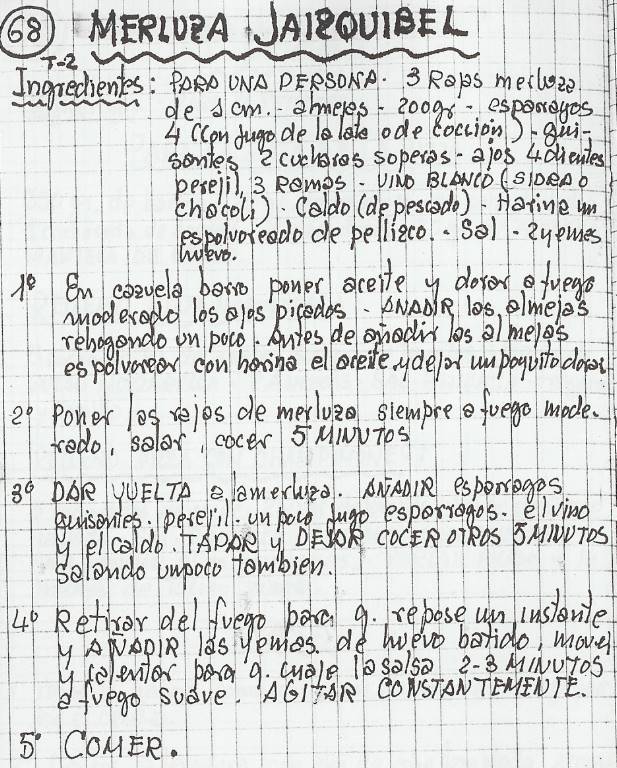 68 MERLUZA JAIZQUIBEL
T-2
Ingredientes: PARA UNA PERSONA. 3 Rajas merluza
de 1 cm. - almejas - 200 gr - esparragos
4 (con jugo de la lata o de cocción) - gui-
santes 2 cucharas soperas - ajos 4 dientes
perejil, 3 Ramas - VINO BLANCO (SIDRA O
chacoli) - Caldo (de pescado) - Harina un
espolvoreado de pellizco. - Sal - 2 yemas
huevo.
1º En cazuela barro poner aceite y dorar a fuego
moderado los ajos picados - AÑADIR las almejas
rehogando un poco. Antes de añadir las almejas
espolvorear con harina el aceite, y dejar un poquito dorar
2º Poner las rajas de merluza siempre a fuego mode-
rado, salar, cocer 5 MINUTOS
3º DAR VUELTA a la merluza. AÑADIR esparragos
guisantes. perejil. un poco jugo esparragos. el vino
y el caldo. TAPAR y DEJAR COCER OTROS 5 MINUTOS
salando un poco tambien.
4º Retirar del fuego para q. repose un instante
y AÑADIR las yemas de huevo batido, mover
y calentar para q. cuaje la salsa 2-3 MINUTOS
a fuego suave. AGITAR CONSTANTEMENTE.
5º COMER.